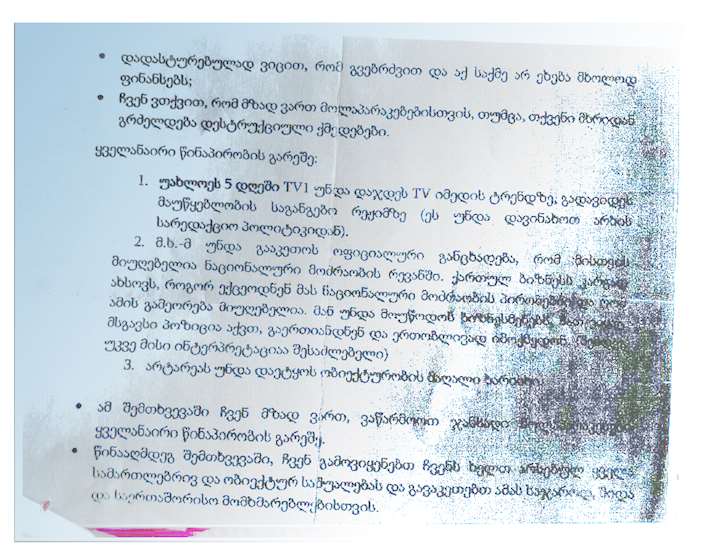 • დადასტურებულად ვიცით, რომ გვებრძვით და აქ საქმე არ ეხება მხოლოდ
ფინანსებს;
• ჩვენ ვთქვით, რომ მზად ვართ მოლაპარაკებებისთვის, თუმცა, თქვენი მხრიდან
გრძელდება დესტრუქციული ქმედებები.
ყველანაირი წინაპირობის გარეშე;
1. უახლოეს 5 დღეში TV1 უნდა დაჯდეს TV იმედის ტრენდზე, გადავიდეს
მაუწყებლობის საგანგებო რეჟიმზე (ეს უნდა დავინახოთ არხის
სარედაქციო პოლიტიკიდან).
2. მ.ხ.-მ უნდა გააკეთოს ოფიციალური განცხადება, რომ მისთვის
მიუღებელია ნაციონალური მოძრაობის რევანში. ქართულ ბიზნესს კარგად
ახსოვს, როგორ ექცეოდნენ მას ნაციონალური მოძრაობის
ამის გამეორება მიუღებელია. მან უნდა მოუწოდოს ბიზნესმენებს,
მსგავსი პოზიცია აქვთ, გაერთიანდნენ და ერთობლივად იმოქმედონ.
უკვე მისი ინტერპრეტაციაა შესაძლებელი)
3. არტარეას უნდა დაეტყოს ობიექტურობის მაღალი ხარისხი.
• ამ შემთხვევაში ჩვენ მზად ვართ, ვაწარმოოთ ჯანსაღი
ყველანაირი წინაპირობის გარეშე.
• წინააღმდეგ შემთხვევაში, ჩვენ გამოვიყენებთ ჩვენს ხელთ არსებულ ყველა
სამართლებრივ და ობიექტურ საშუალებას და გავაკეთებთ ამას საჯაროდ, შიდა
და საერთაშორისო მომხმარებლებისთვის.